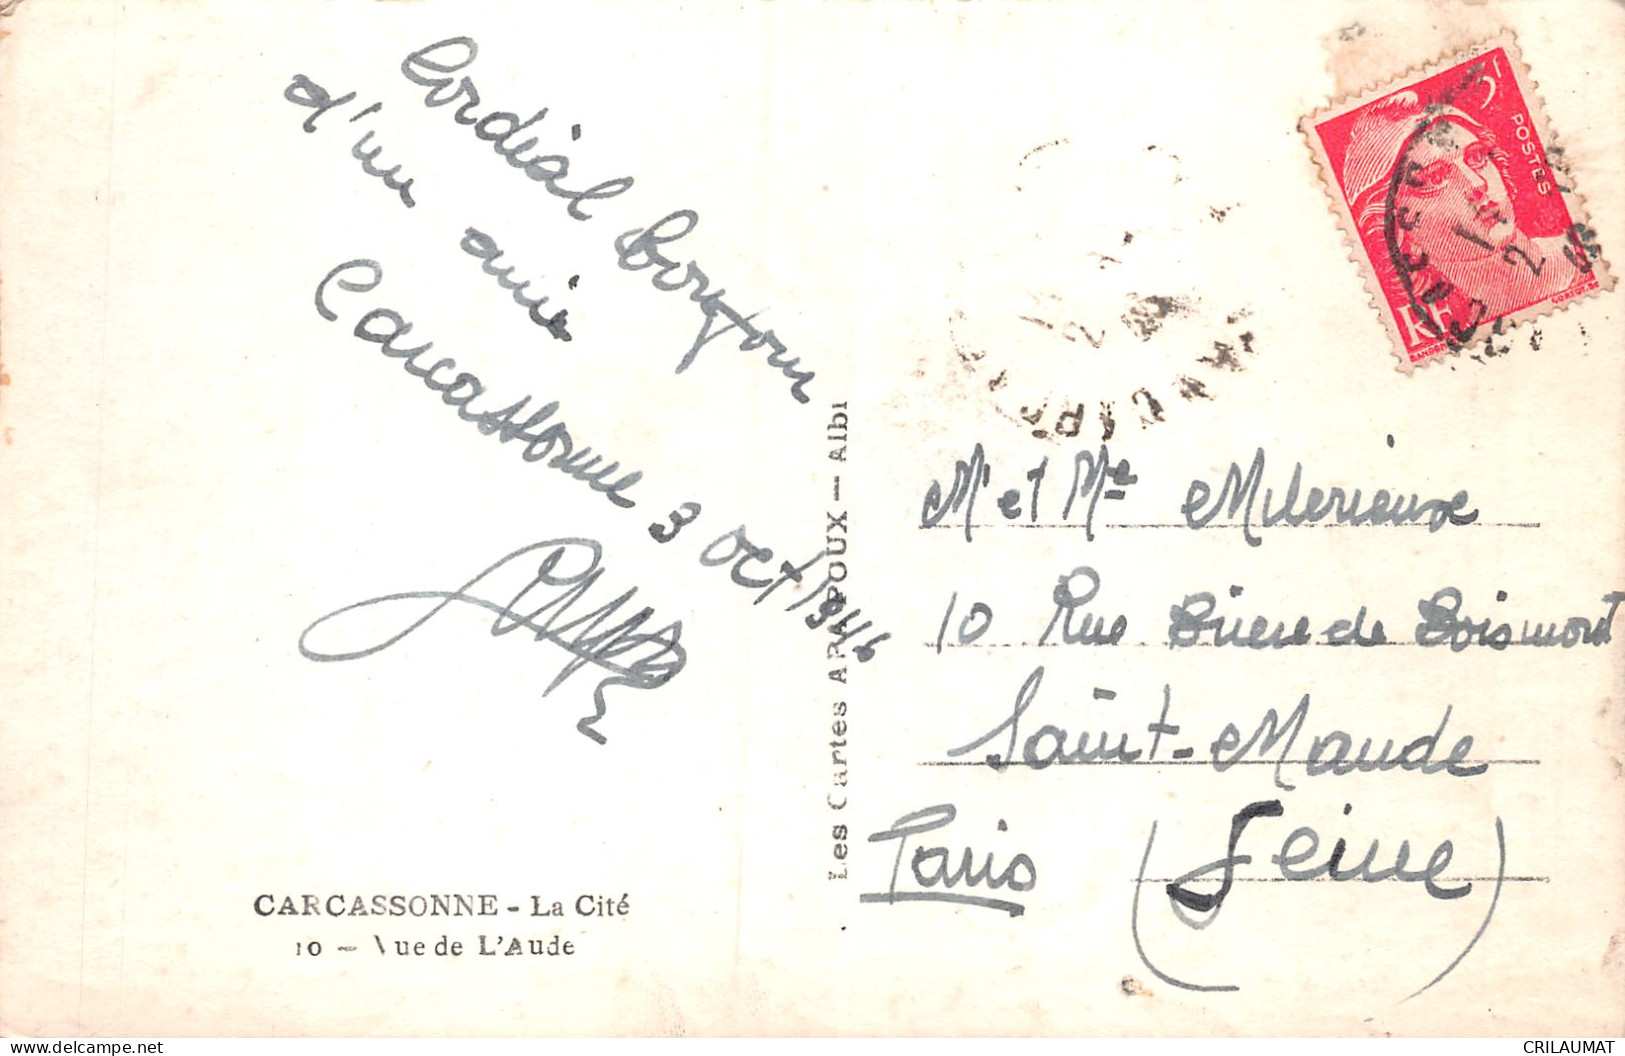 Cordial bonjour
d'un amie
Carcassonne 3 oct 1946
CARCASSONNE - La Cité
10 - Vue de L'Aude
Les Cartes APA POUX - Albi
3F
POSTES
RF
M et Me Milerieux
10 Rue Brière de Boismont
Saint-Maude
Paris (Seine)
CRILAUMAT